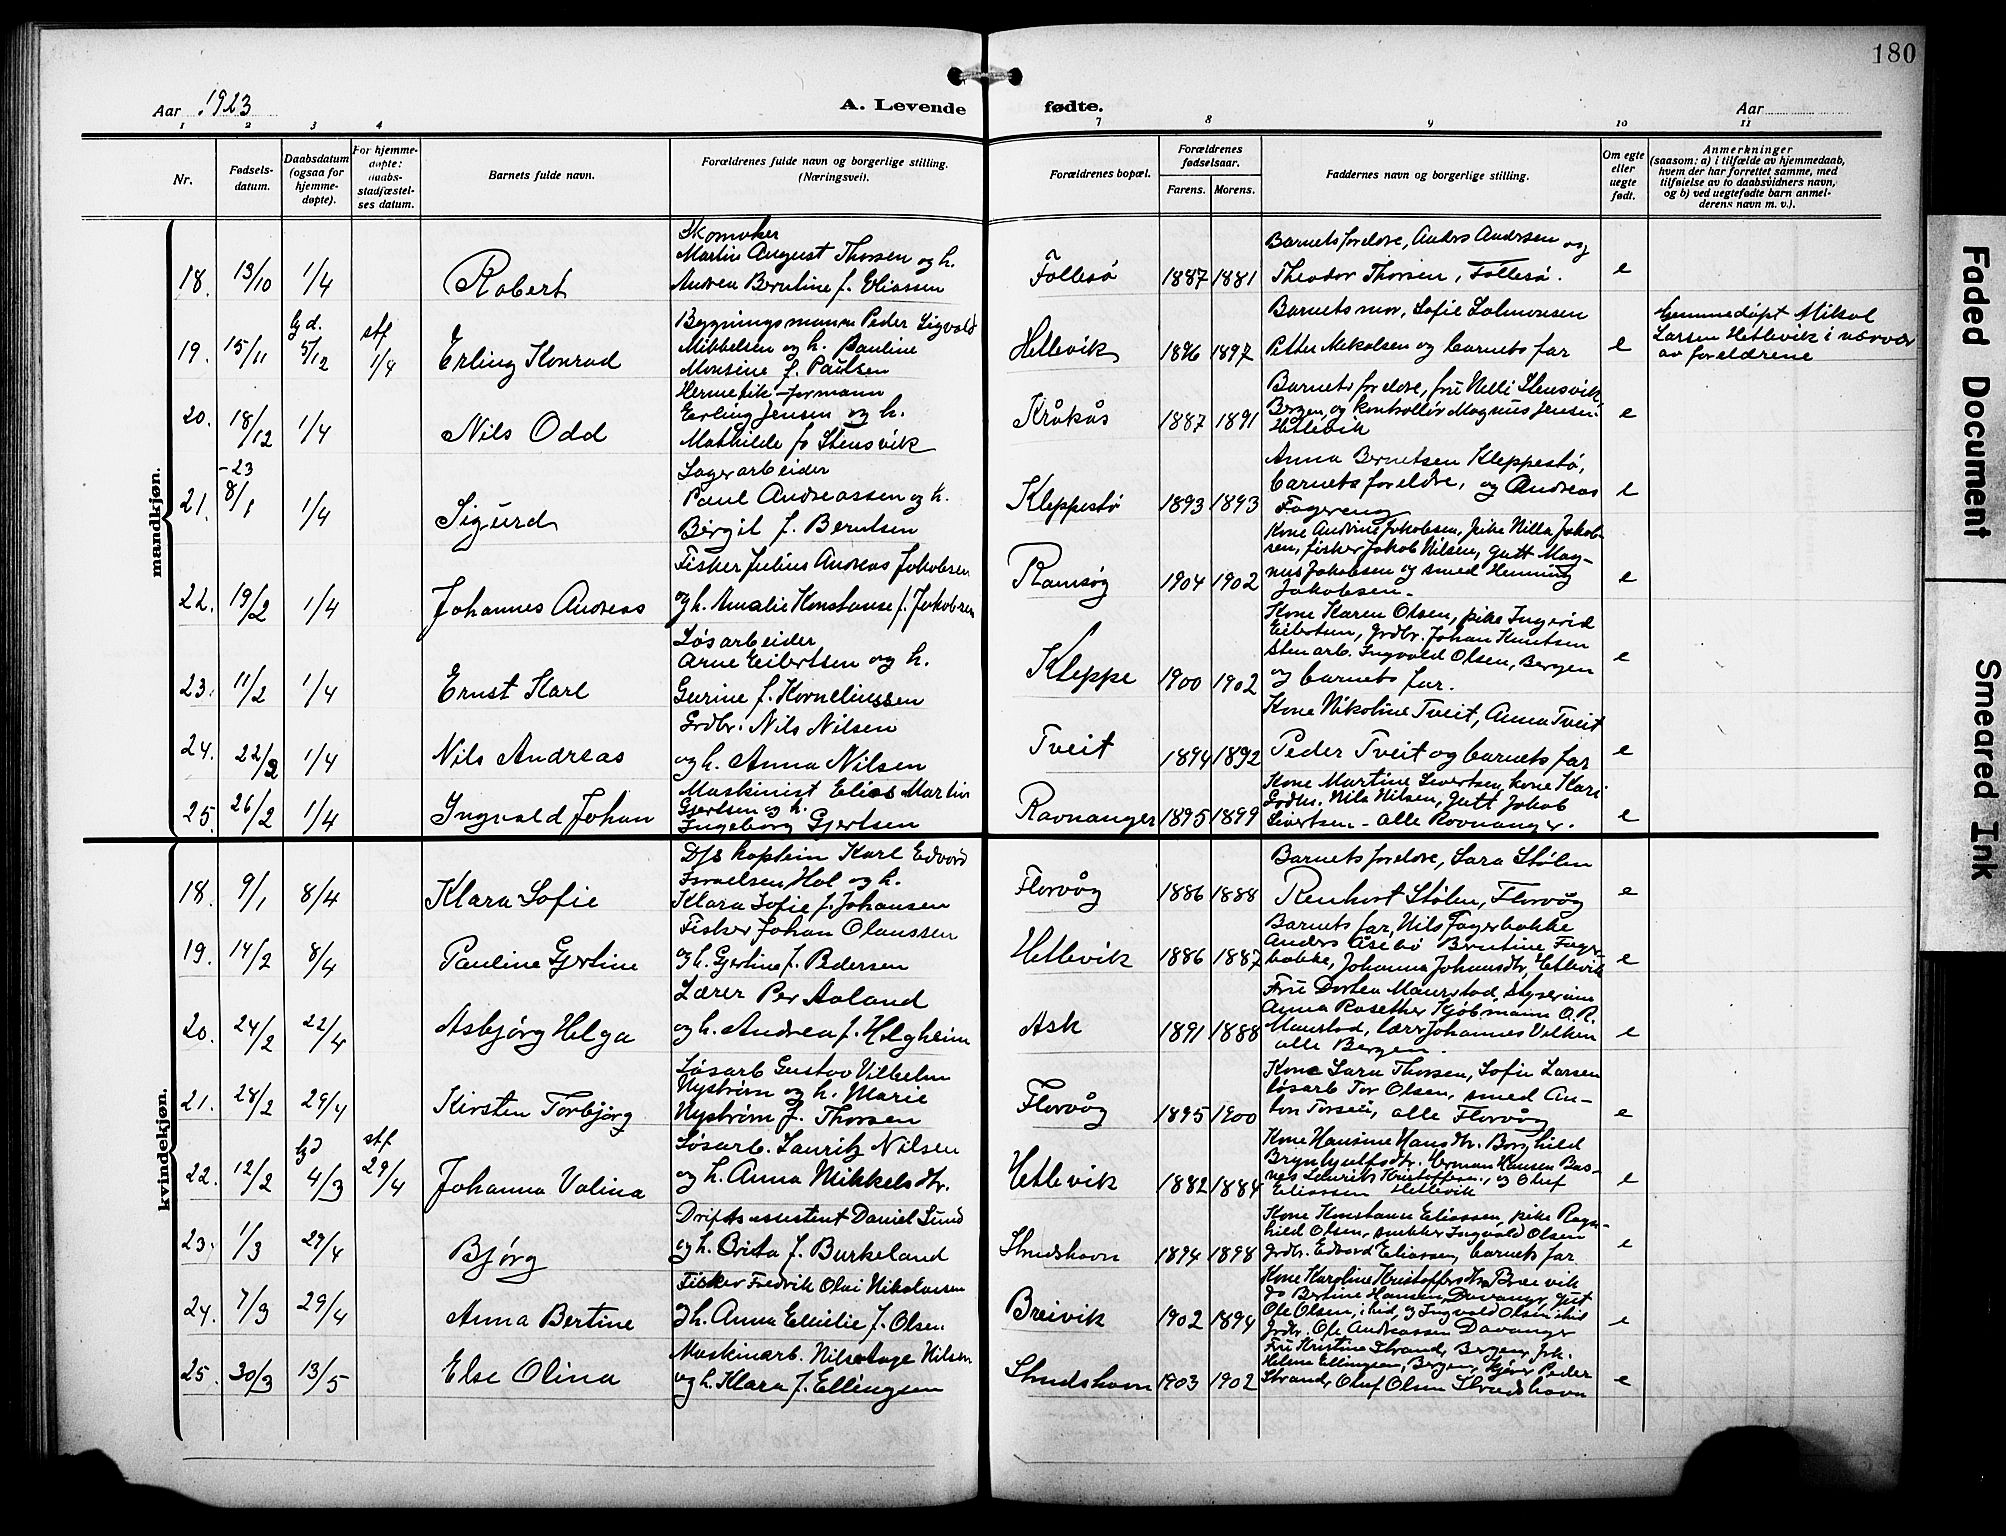 180
Aar 1923
A. Levende fødte.
Aar
1 2 3 4 7 8 9 10 11
Nr.
Fødsels-datum.
Daabsdatum (ogsaa for hjemme-døpte).
For hjemme-døpte: daabs-stadfæstel-ses datum.
Barnets fulde navn.
Forældrenes fulde navn og borgerlige stilling. (Næringsvei).
Forældrenes bopæl.
Forældrenes fødselsaar.
Farens. Morens.
Faddernes navn og borgerlige stilling.
Om egte eller uegte født.
Anmerkninger
(saasom: a) i tilfælde av hjemmedaab,
hvem der har forrettet samme, med
tilføielse av to daabsvidners navn,
og b) ved uegtefødte barn anmel-
derens navn m. v.).
mandkjøn.
18. 13/10 1/4 Robert
Skomaker
Martin August Thorsen og h.
Andrea Berntine f. Eliassen
Follesø 1887 1881
Barnets foreldre, Anders Andersen og
Theodor Thorsen, Follesø. e
19. 15/11 hjd. 5/12 stf 1/4 Erling Konrad
Bygningsmann Peder Sigvald
Mikkelsen og h. Pauline
Monsine f. Paulsen
Hetlevik 1896 1897
Barnets mor, Sofie Salmonsen
Petter Mikalsen og barnets far e
hjemmedøpt Mikal
Larsen Hetlevik i nærvær
av foreldrene
20. 18/12 1/4 Nils Odd
Hermetik-formann
Erling Jensen og h.
Mathilde f. Stensvik
Kråkås 1887 1891
Barnets foreldre, fru Nelli Stensvik
Bergen, og kontrollør Magnus Jensen
Hetlevik e
21. -23 8/1 1/4 Sigurd
Lagerarbeider
Paul Andreassen og h.
Birgit f. Berntsen
Kleppestø 1893 1893
Anna Berntsen Kleppestø,
barnets foreldre, og Andreas
Fagereng e
22. 19/2 1/4 Johannes Andreas
Fisker Julius Andreas Jakobsen
og h. Amalie Konstanse f. Jakobsen
Ramsøy 1904 1902
Kone Andrine Jakobsen, pike Nilla Jakob-
sen, fisker Jakob Nilsen, gutt Mag-
nus Jakobsen og smed Henning
Jakobsen. e
23. 11/2 1/4 Ernst Karl
Løsarbeider
Arne Eilertsen og h.
Gurine f. Korneliussen
Kleppe 1900 1902
Kone Karen Olsen, pike Ingerid
Eilertsen, grdbr. Johan Knutsen
Stenarb. Ingvald Olsen, Bergen
og barnets far. e
24. 22/2 1/4 Nils Andreas
Grdbr. Nils Nilsen
og h. Anna Nilsen
Tveit 1894 1892
Kone Nikoline Tveit, Anna Tveit
Peder Tveit og barnets far e
25. 26/2 1/4 Ingvald Johan
Maskinist Elias Martin
Gjertsen og h.
Ingeborg Gjertsen
Ravnanger 1895 1899
Kone Martine Sivertsen, kone Kari
Nils Nilsen, gutt Jakob
Sivertsen - alle Ravnanger. e
kvindekjøn.
18. 9/1 8/4 Klara Sofie
D/S kaptein Karl Edvard
Israelsen Hol og h.
Klara Sofie f. Johansen
Florvåg 1886 1888
Barnets foreldre, Sara Stølen
Renhart Stølen, Florvåg e
19. 14/2 8/4 Pauline Gjertine
Fisker Johan Olaussen
og h. Gjertine f. Pedersen
Hetlevik 1886 1887
Barnets far, Nils Fagerbakke
Anders Åsebø Berntine Fager-
bakke, Johanna Johansdtr, Hetlevik e
20. 24/2 22/4 Asbjørg Helga
Lærer Per Aaland
og h. Andrea f. Helgheim
Ask 1891 1888
Fru Dortea Maurstad,
Anna Rosether Kjøbmann O.R.
Maurstad, lærer Johannes Velken
alle Bergen. e
21. 28/2 29/4 Kirsten Torbjørg
Løsarb Gustav Vilhelm
Nystrøm og h. Marie
Nystrøm f. Thorsen
Florvåg 1895 1900
Kone Sara Thorsen, Sofie Larsen
løsarb Tor Olsen, smed An-
ton Torsen, alle Florvåg e
22. 12/2 hjd 4/3 stf 29/4 Johanna Valina
Løsarb. Lauritz Nilsen
og h. Anna Mikkelsdtr.
Hetlevik 1882 1884
Kone Hansine Hansdtr. Borghild
Brynhjulfsdtr. Herman Hansen
Laurits Kristoffersen, og Oluf
Eliassen Hetlevik e
23. 1/3 29/4 Bjørg
Driftsassistent Daniel Sund
og h. Brita f. Birkeland
Strudshavn 1894 1898
Kone Konstanse Eliassen, pike Ragn-
hild Olsen, snekker Ingvald Olsen
grdbr. Edvard Eliassen, barnets far e
24. 7/3 29/4 Anna Bertine
Fisker Fredrik Olai Nikolaisen
og h. Anna Emilie f. Olsen
Breivik 1902 1894
Kone Karoline Kristoffersdtr Breivik
do Bertine Hansen, Davanger, gut
Ole Olsen, ibid, og Ingvald Olsen ibid
grdbr. Ole Andreassen Davanger e
25. 30/3 13/5 Else Olina
Maskinarb. Nils Aage Nilsen
og h. Klara f. Ellingsen
Strudshavn 1903 1902
Fru Kristine Strand, Bergen, frk.
Helene Ellingsen, Bergen, Peder
Strand, Oluf Olsen Strudshavn e
Faded Document
Smeared Ink